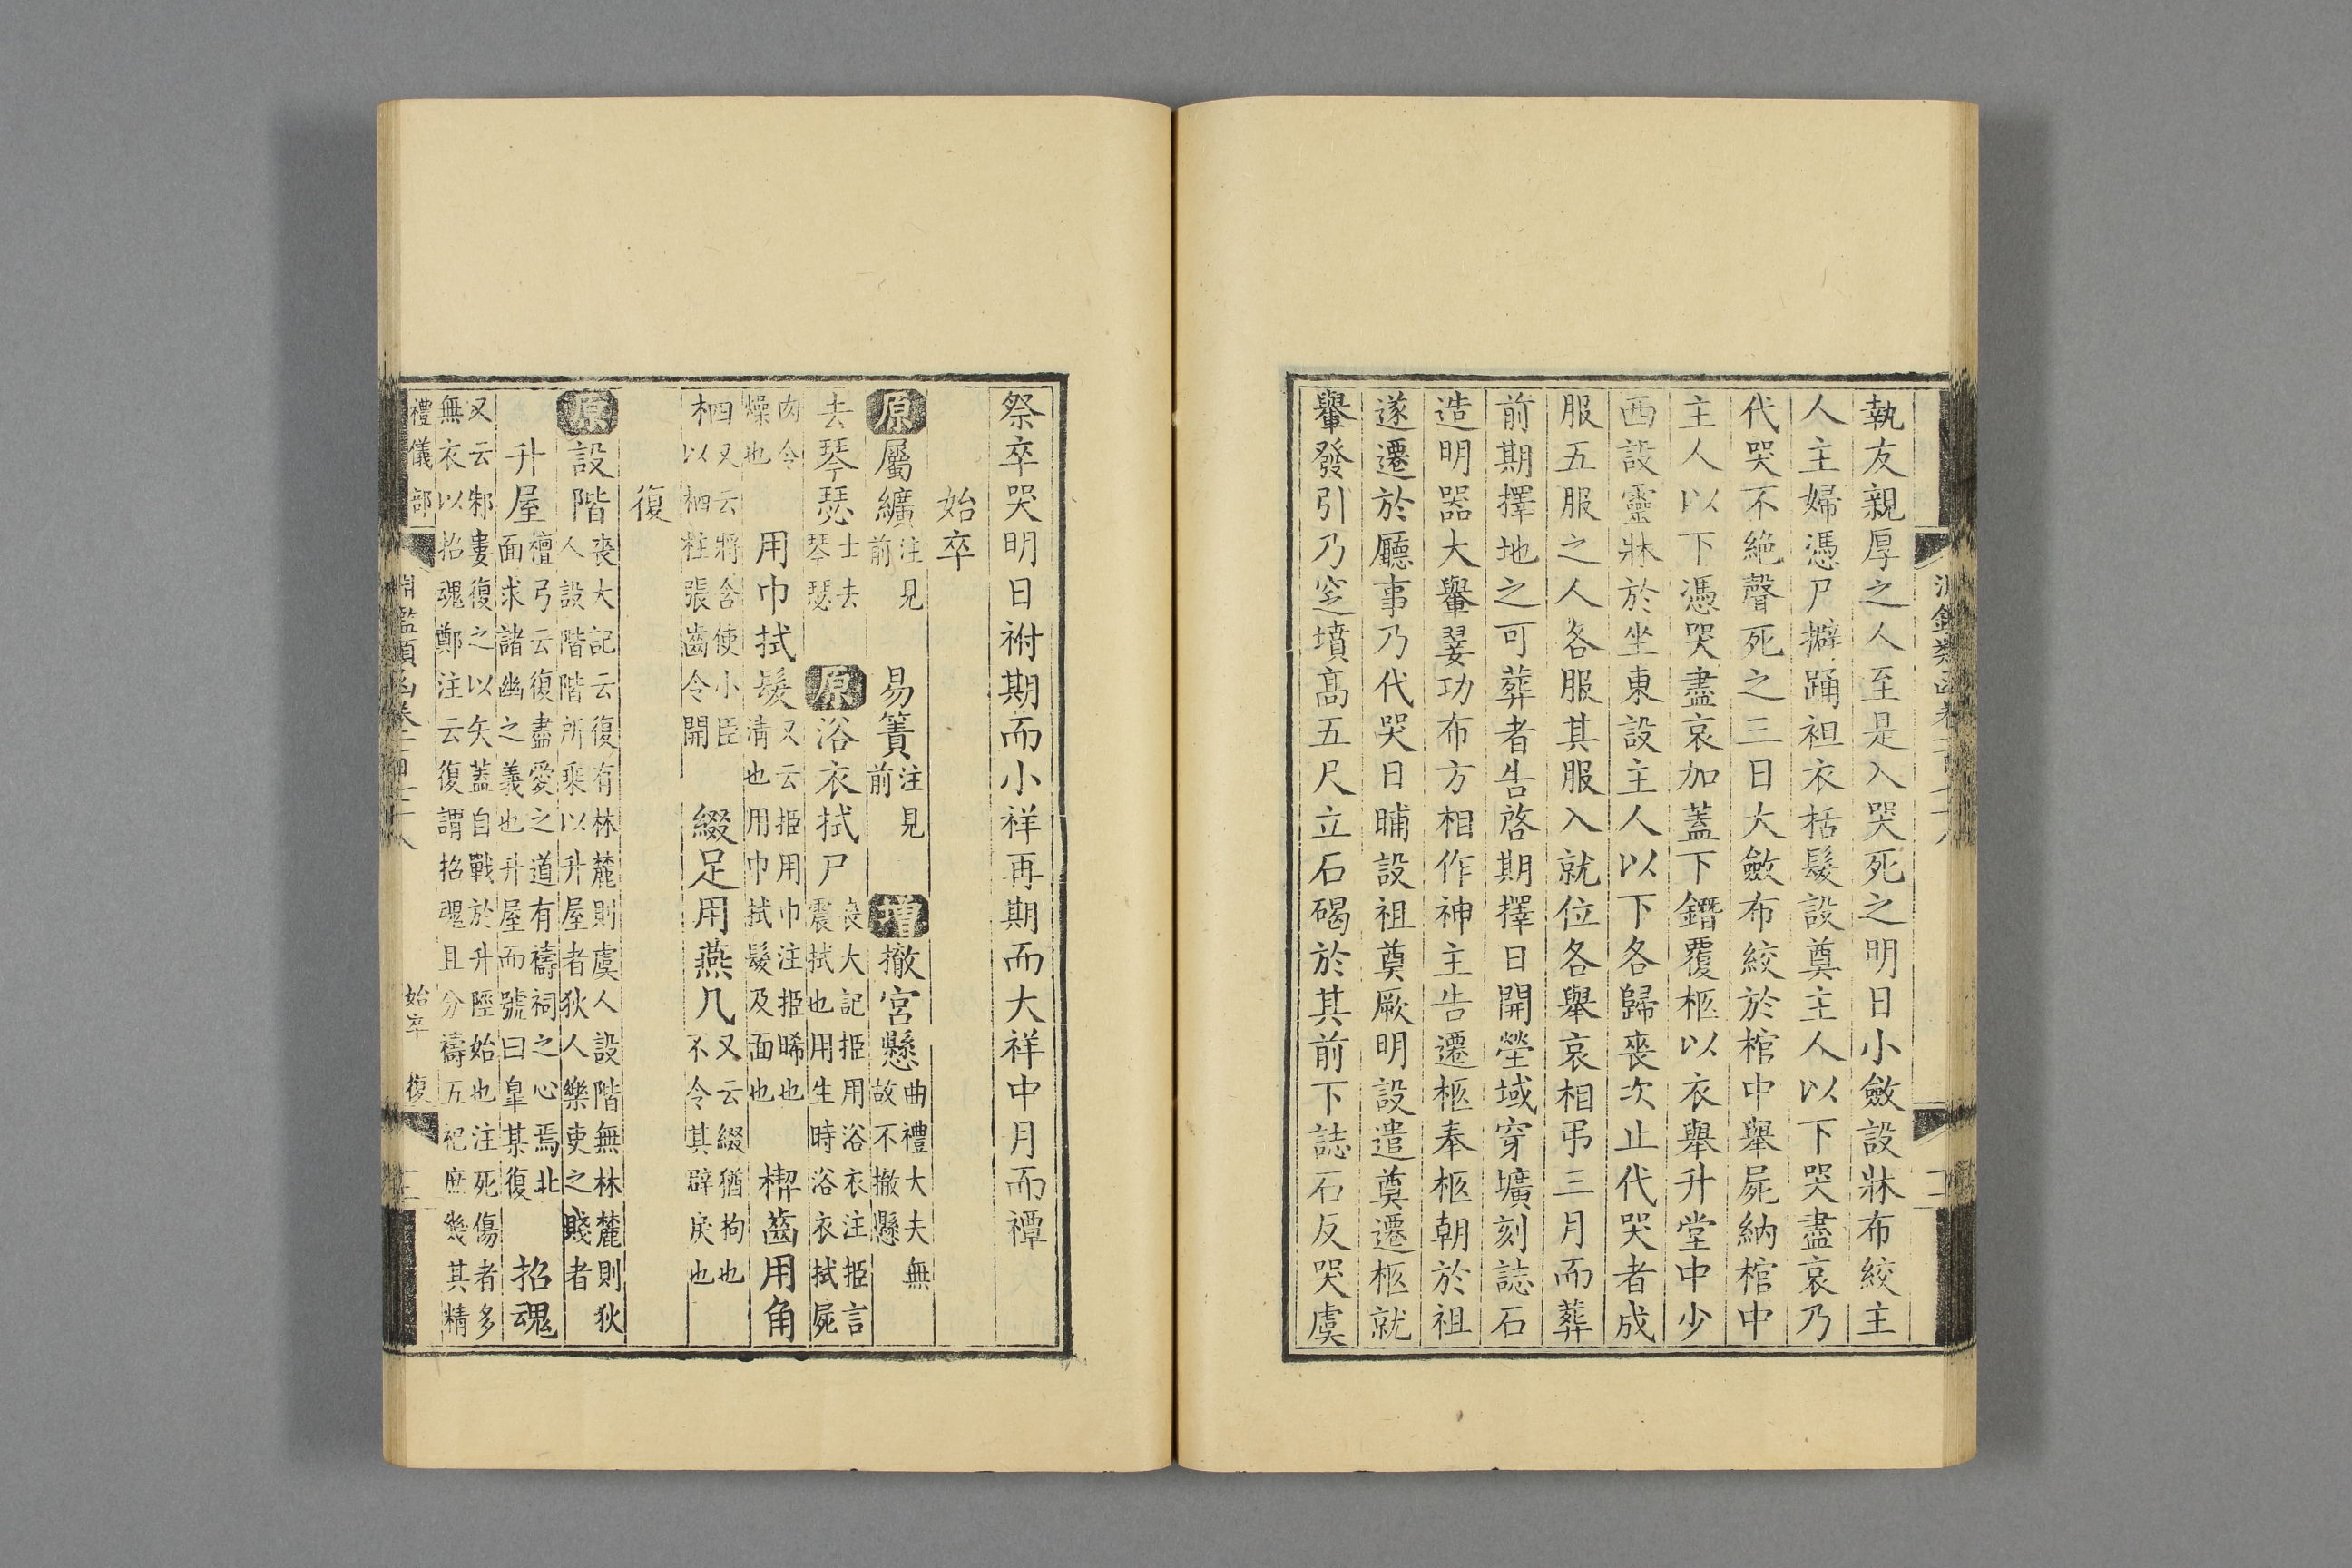 執友親厚之人至是入哭死之明日小斂設牀布絞主
人主婦憑尸擗踊袒衣括髮設奠主人以下哭盡哀乃
代哭不絶聲死之三日大斂布絞於棺中舉屍納棺中
主人以下憑哭盡哀加蓋下鐕覆柩以衣舉升堂中少
西設靈牀於坐東設主人以下各歸喪次止代哭者成
服五服之人各服其服入就位各舉哀相弔三月而葬
前期擇地之可葬者告啓期擇日開塋域穿壙刻誌石
造明器大轝翣功布方相作神主告遷柩奉柩朝於祖
遂遷於廳事乃代哭日晡設祖奠厥明設遣奠遷柩就
轝發引乃窆墳高五尺立石碣於其前下誌石反哭虞
祭卒哭明日祔期而小祥再期而大祥中月而禫
始卒
原屬纊注見前 易簀注見前 增撤宮懸曲禮大夫無故不撤懸
去琴瑟士去琴瑟 原浴衣拭尸喪大記挋用浴衣注挋言震拭也用生時浴衣拭屍
肉令燥也 用巾拭髮又云挋用巾注挋晞也清也用巾拭髮及面也 楔齒用角
柶又云將含使小臣以柶柱張齒令開 綴足用燕几又云綴猶拘也不令其辟戾也
復
原設階喪大記云復有林麓則虞人設階無林麓則狄人設階階所乘以升屋者狄人樂吏之賤者
升屋檀弓云復盡愛之道有禱祠之心焉北面求諸幽之義也升屋而號曰皐某復 招魂
又云邾婁復之以矢蓋自戰於升陘始也注死傷者多無衣以招魂鄭注云復謂招魂且分禱五祀庶幾其精
禮儀部 淵鑑類函卷 始卒 復